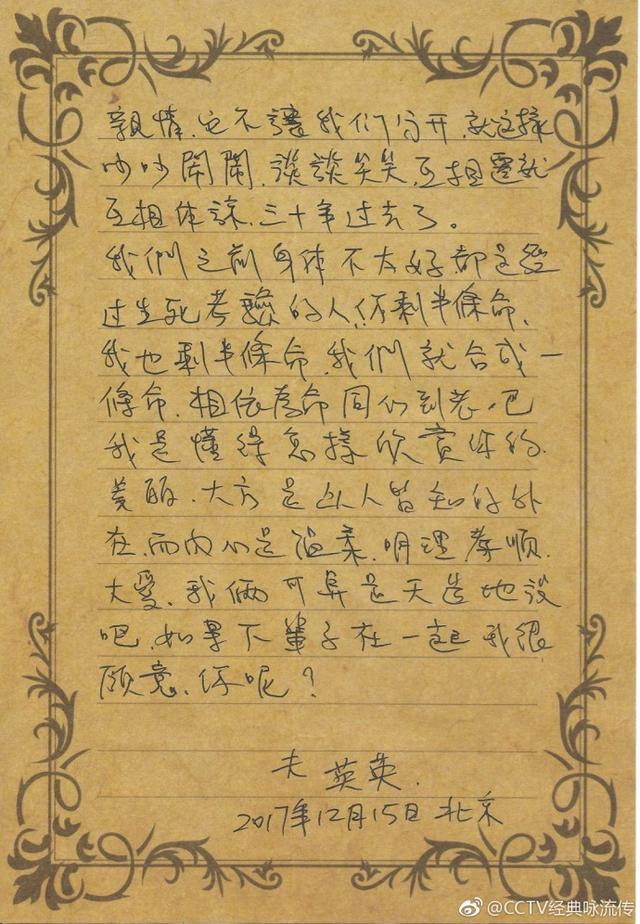 親情,它不讓我们分开,就这样
吵吵鬧鬧,談談笑笑,互相遷就
互相体諒,三十年过去了。
我們之前身体不太好都是经
过生死考驗的人,你剩半條命,
我也剩半條命,我們就合成一
條命,相依為命同们到老,吧
我是懂得怎樣欣賞你的
美丽,大方是人人皆知的外
在,而内心是温柔,明理孝順,
大愛,我俩可算是天造地设
吧,如果下輩子在一起我很
願意,你呢?
夫 英英.
2017年12月15日 北京
@CCTV经典咏流传